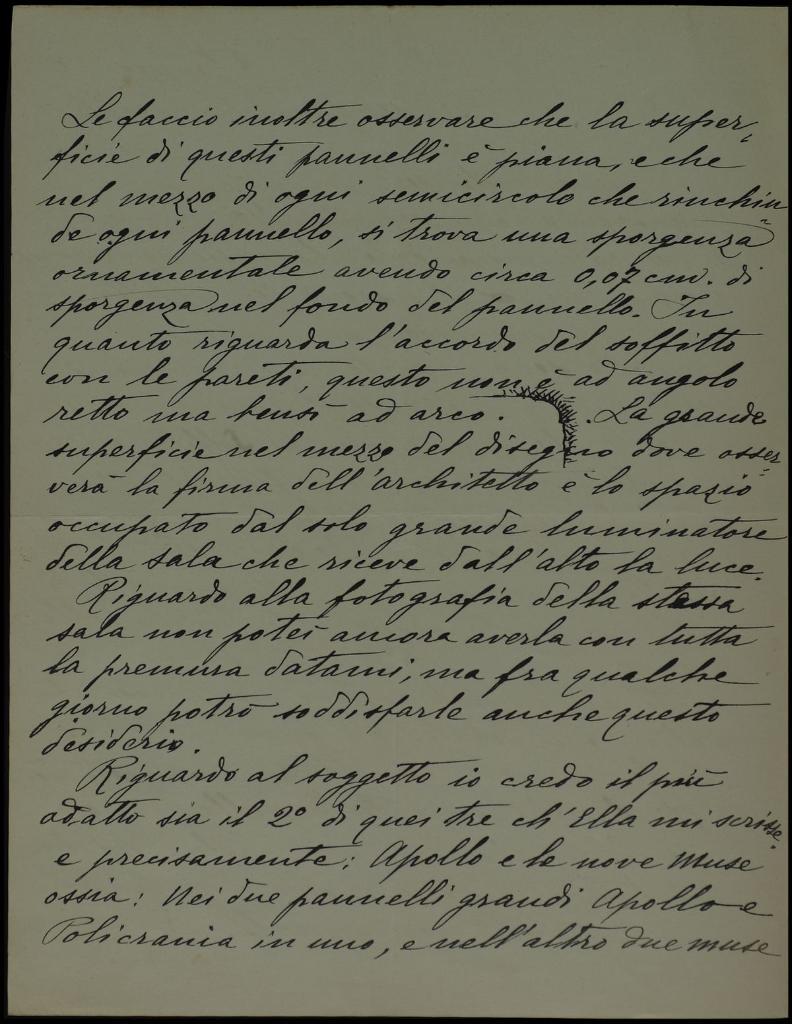 Le faccio inoltre osservare che la super-
ficie di questi pannelli è piana, e che
nel mezzo di ogni semicircolo che rinchiu
de ogni pannello, si trova una sporgenza
ornamentale avendo circa 0,07 cm. di
sporgenza nel fondo del pannello. In
quanto riguarda l'accordo del soffitto
con le pareti, questo non è ad angolo
retto ma bensì ad arco. . La grande
superficie nel mezzo del disegno dove osser-
verà la firma dell'architetto è lo spazio
occupato dal solo grande luminatore
della sala che riceve dall'alto la luce.
Riguardo alla fotografia della stessa
sala non potei ancora averla con tutta
la premura datami, ma fra qualche
giorno potrò soddisfarle anche questo
desiderio.
Riguardo al soggetto io credo il più
adatto sia il 2° di quei tre ch'Ella mi scrisse
e precisamente: Apollo e le nove Muse
ossia: Nei due pannelli grandi Apollo e
Policrania in uno, e nell'altro due muse